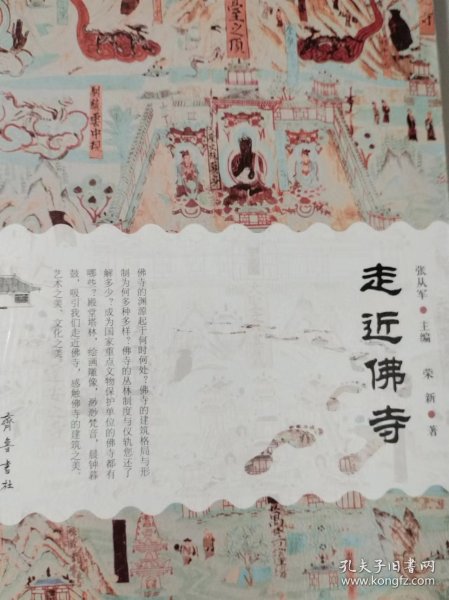 走近佛寺
张从军 主编 荣新 著
佛寺的渊源起于何时何处？佛寺的建筑格局与形
制为何多种多样？佛寺的丛林制度与仪轨您还了
解多少？成为国家重点文物保护单位的佛寺都有
哪些？殿堂塔林，绘画雕像，渺渺梵音，晨钟暮
鼓，吸引我们走近佛寺，感触佛寺的建筑之美、
艺术之美、文化之美。
齐鲁书社
之顶
孔夫子旧书网
www.kongfz.com